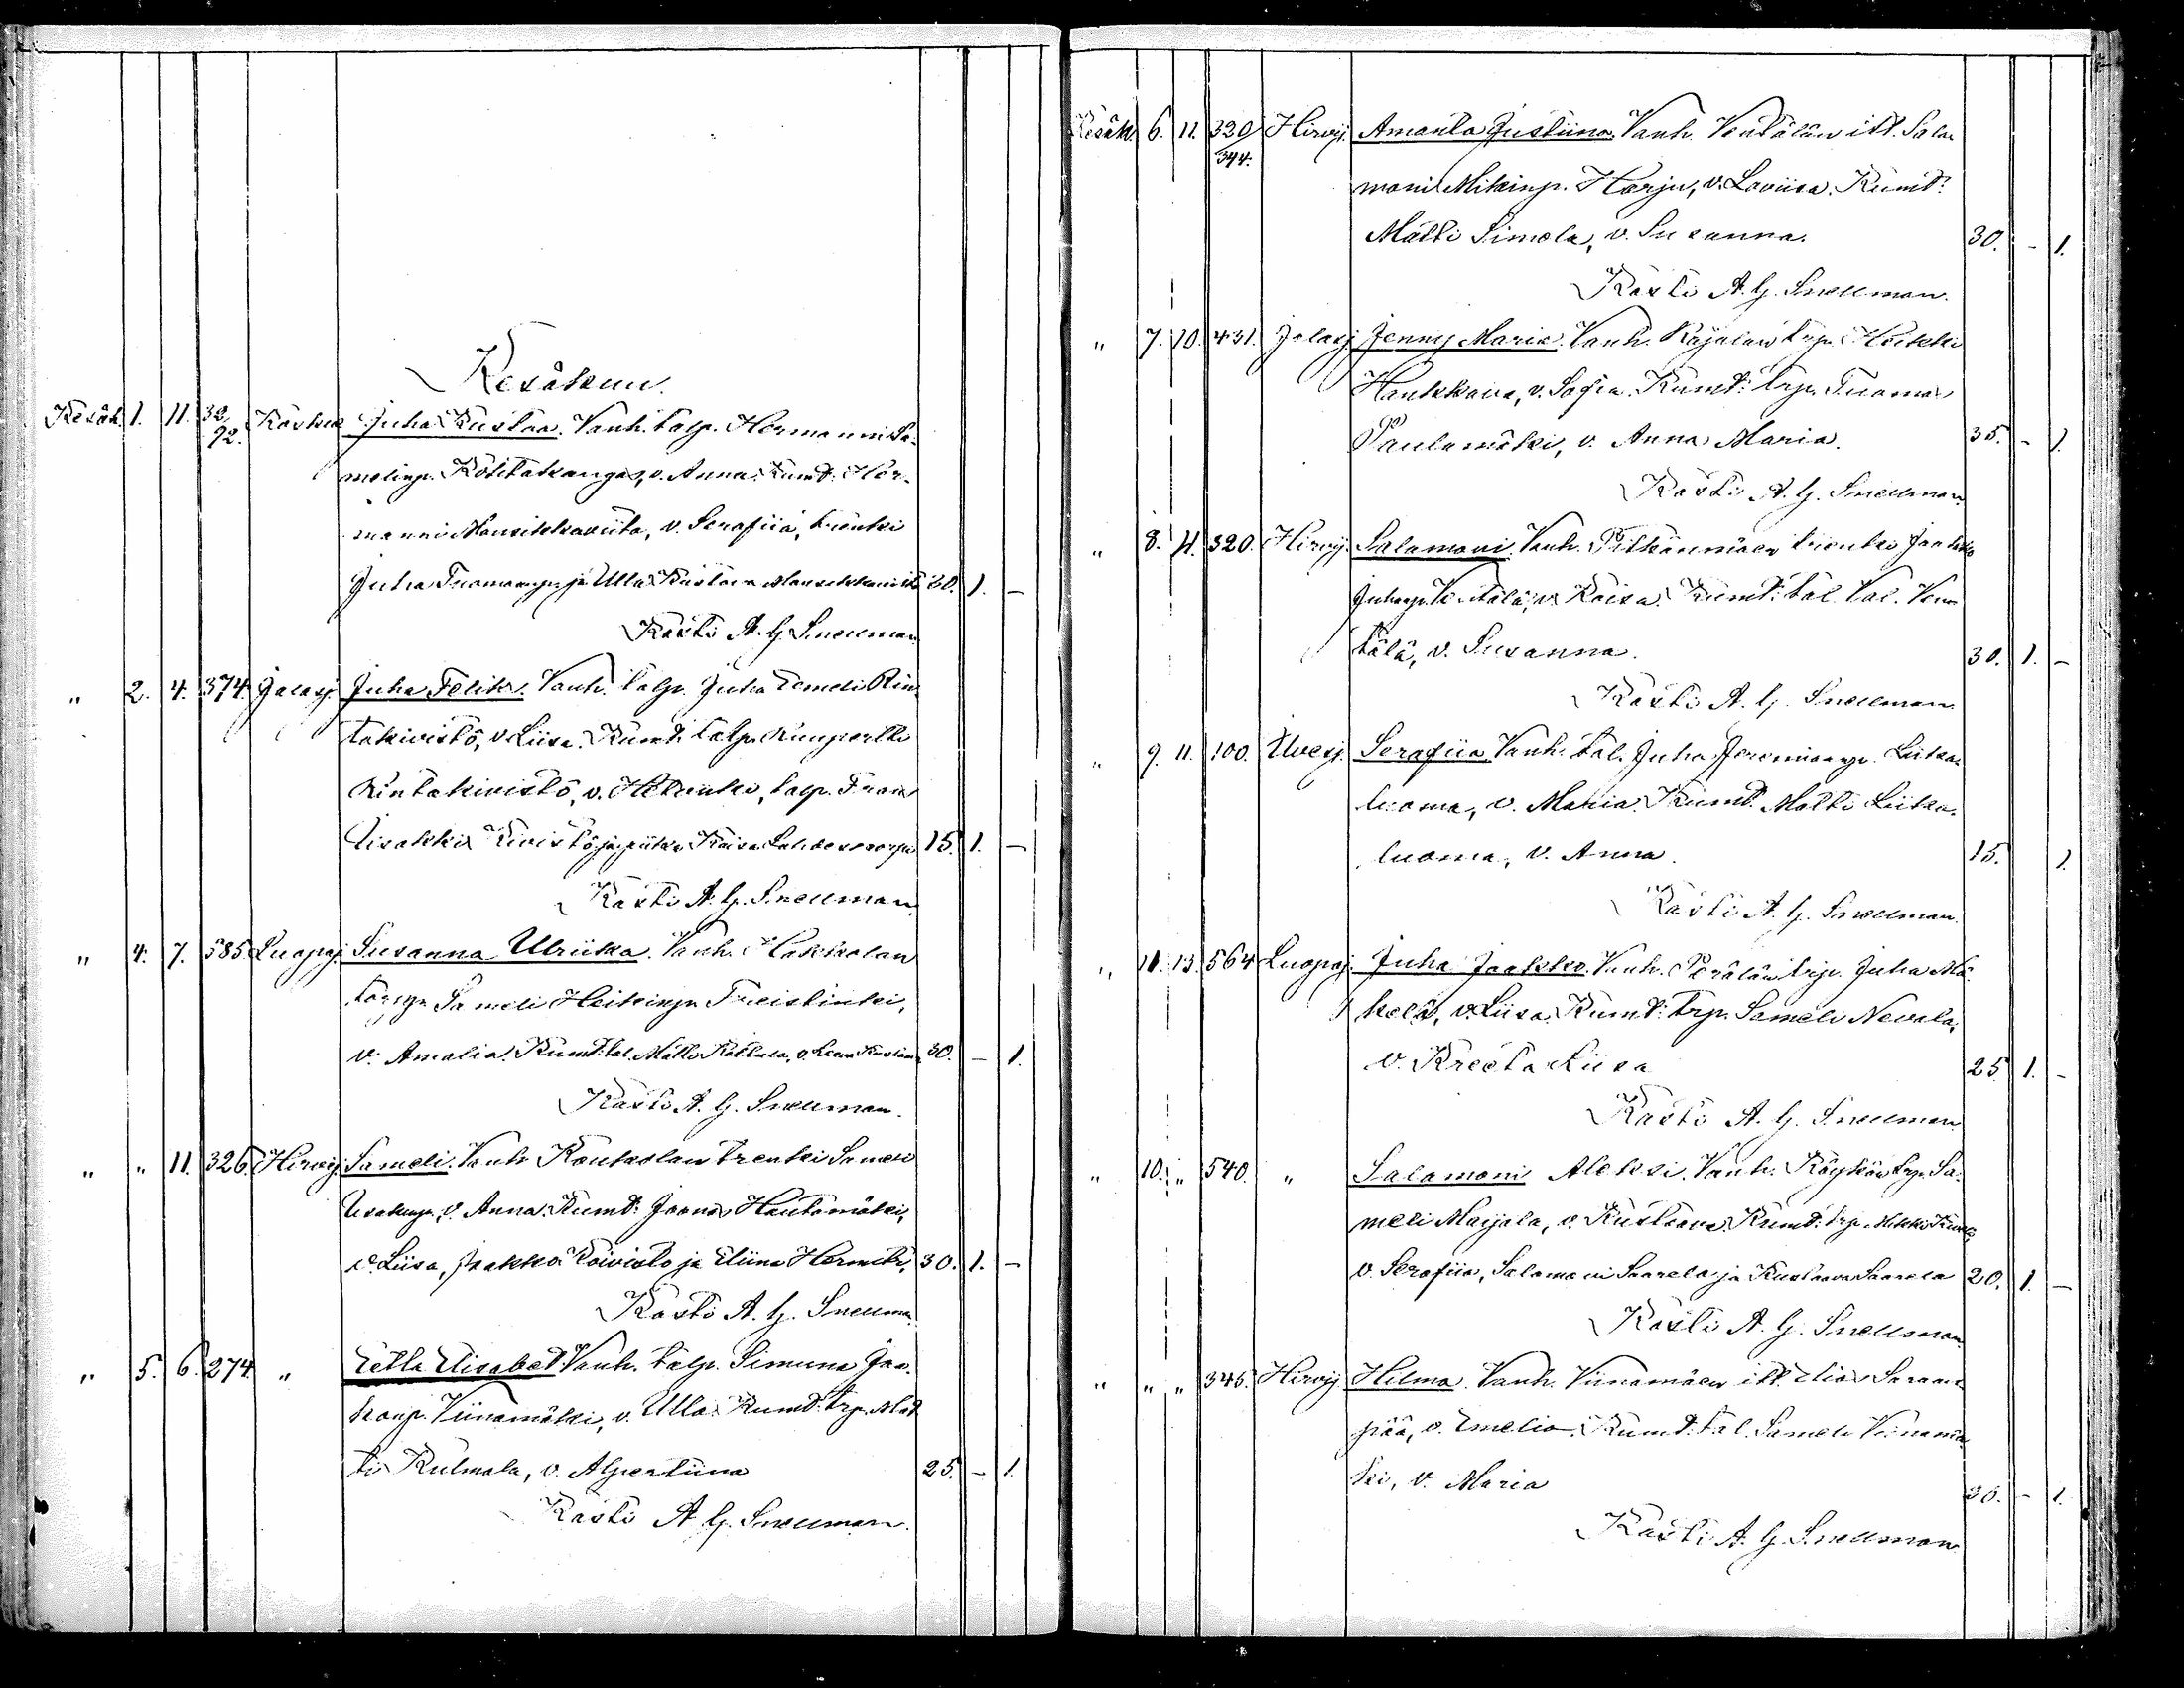 Kesäkuu.
Kesäk. 1. 11. 32/92. Koskue Juha Kustaa. Vanh. talp. Hermanni Sa-
melinp. Rötitakangas, v. Anna. Kumd: Her-
manni Mansikkaviita, v. Serafiia, trenki
Juha Tuomaanp. ja Ulla Kustava Mansikkaviita 30. 1. -
Kasti A. G. Snellman.
" 2. 4. 374. Jalasj. Juha Feliks. Vanh. talp. Juha Eemeli Rin-
takivistö, v. Liisa. Kumd: talp. Ruupertti
Rintakivistö, v. Helunki, talp. Frans
Iisakki Kivistö ja piika Kaisa 15. 1. -
Kasti A. G. Snellman.
" 4. 7. 585. Luopaj. Susanna Ulriika. Vanh. Hakkolan
torpp. Sameli Heikinp. Treistinki,
v. Amalia. Kumd: tal. Matti Kettula, v. Leena Kustava 30. - 1.
Kasti A. G. Snellman.
" " 11. 326. Hirvij. Sameli. Vanh. Koukolan trenki Sameli
Iisakinp., v. Anna. Kumd: Joonas Hautamäki,
v. Liisa, Jaakko Koivisto ja Eliina 30. 1. -
Kasti A. G. Snellman
" 5. 6. 274. " Eetla Elisabet. Vanh. talp. Simuna Jaa-
konp. Viinamäki, v. Ulla. Kumd: trp. Mat-
ti Kulmala, v. Alpertiina 25. - 1.
Kasti A. G. Snellman.
Kesäk. 6. 11. 320/344. Hirvij. Amanta Justiina. Vanh. Ventälän itl. Sala-
moni Mikinp. Harju, v. Loviisa. Kumd:
Matti Simola, v. Susanna. 30. - 1.
Kasti A. G. Snellman.
" 7. 10. 431. Jalasj. Jenny Maria. Vanh. Rajalan trp. Heikki
Haukkava, v. Sofia. Kumd: trp. Tuomas
Paulamäki, v. Anna Maria. 35. - 1.
Kasti A. G. Snellman
" 8. 11. 320. Hirvij. Salamoni. Vanh. Pitkänmäen trenki Jaakko
Juhanp. Ventälä, v. Kaisa. Kumd: tal. Ven-
tälä, v. Susanna. 30. 1. -
Kasti A. G. Snellman.
" 9. 11. 100. Ilvesj. Serafiia. Vanh. tal. Juha Jeremiaanp. Liika-
luoma, v. Maria. Kumd: Matti Liika-
luoma, v. Anna. 15. 1.
Kasti A. G. Snellman.
" 11. 13. 564. Luopaj. Juha Jaakko. Vanh. Perälän trp. Juha Mä-
kelä, v. Liisa. Kumd: trp. Sameli Nevala,
v. Kreeta Liisa 25. 1. -
Kasti A. G. Snellman
" 10. " 540. " Salamoni Aleksi. Vanh. Köykän trp. Sa-
meli Marjala, v. Kustaava. Kumd: trp. Mikki
v. Serafiia, Salamoni Saarela ja Kustaava Saarela 20. 1. -
Kasti A. G. Snellman
" " " 345. Hirvij. Hilma. Vanh. Viinamäen itl. Elias Saraan-
pää, v. Emelia. Kumd: tal. Sameli Viinamä-
ki, v. Maria 30. - 1.
Kasti A. G. Snellman